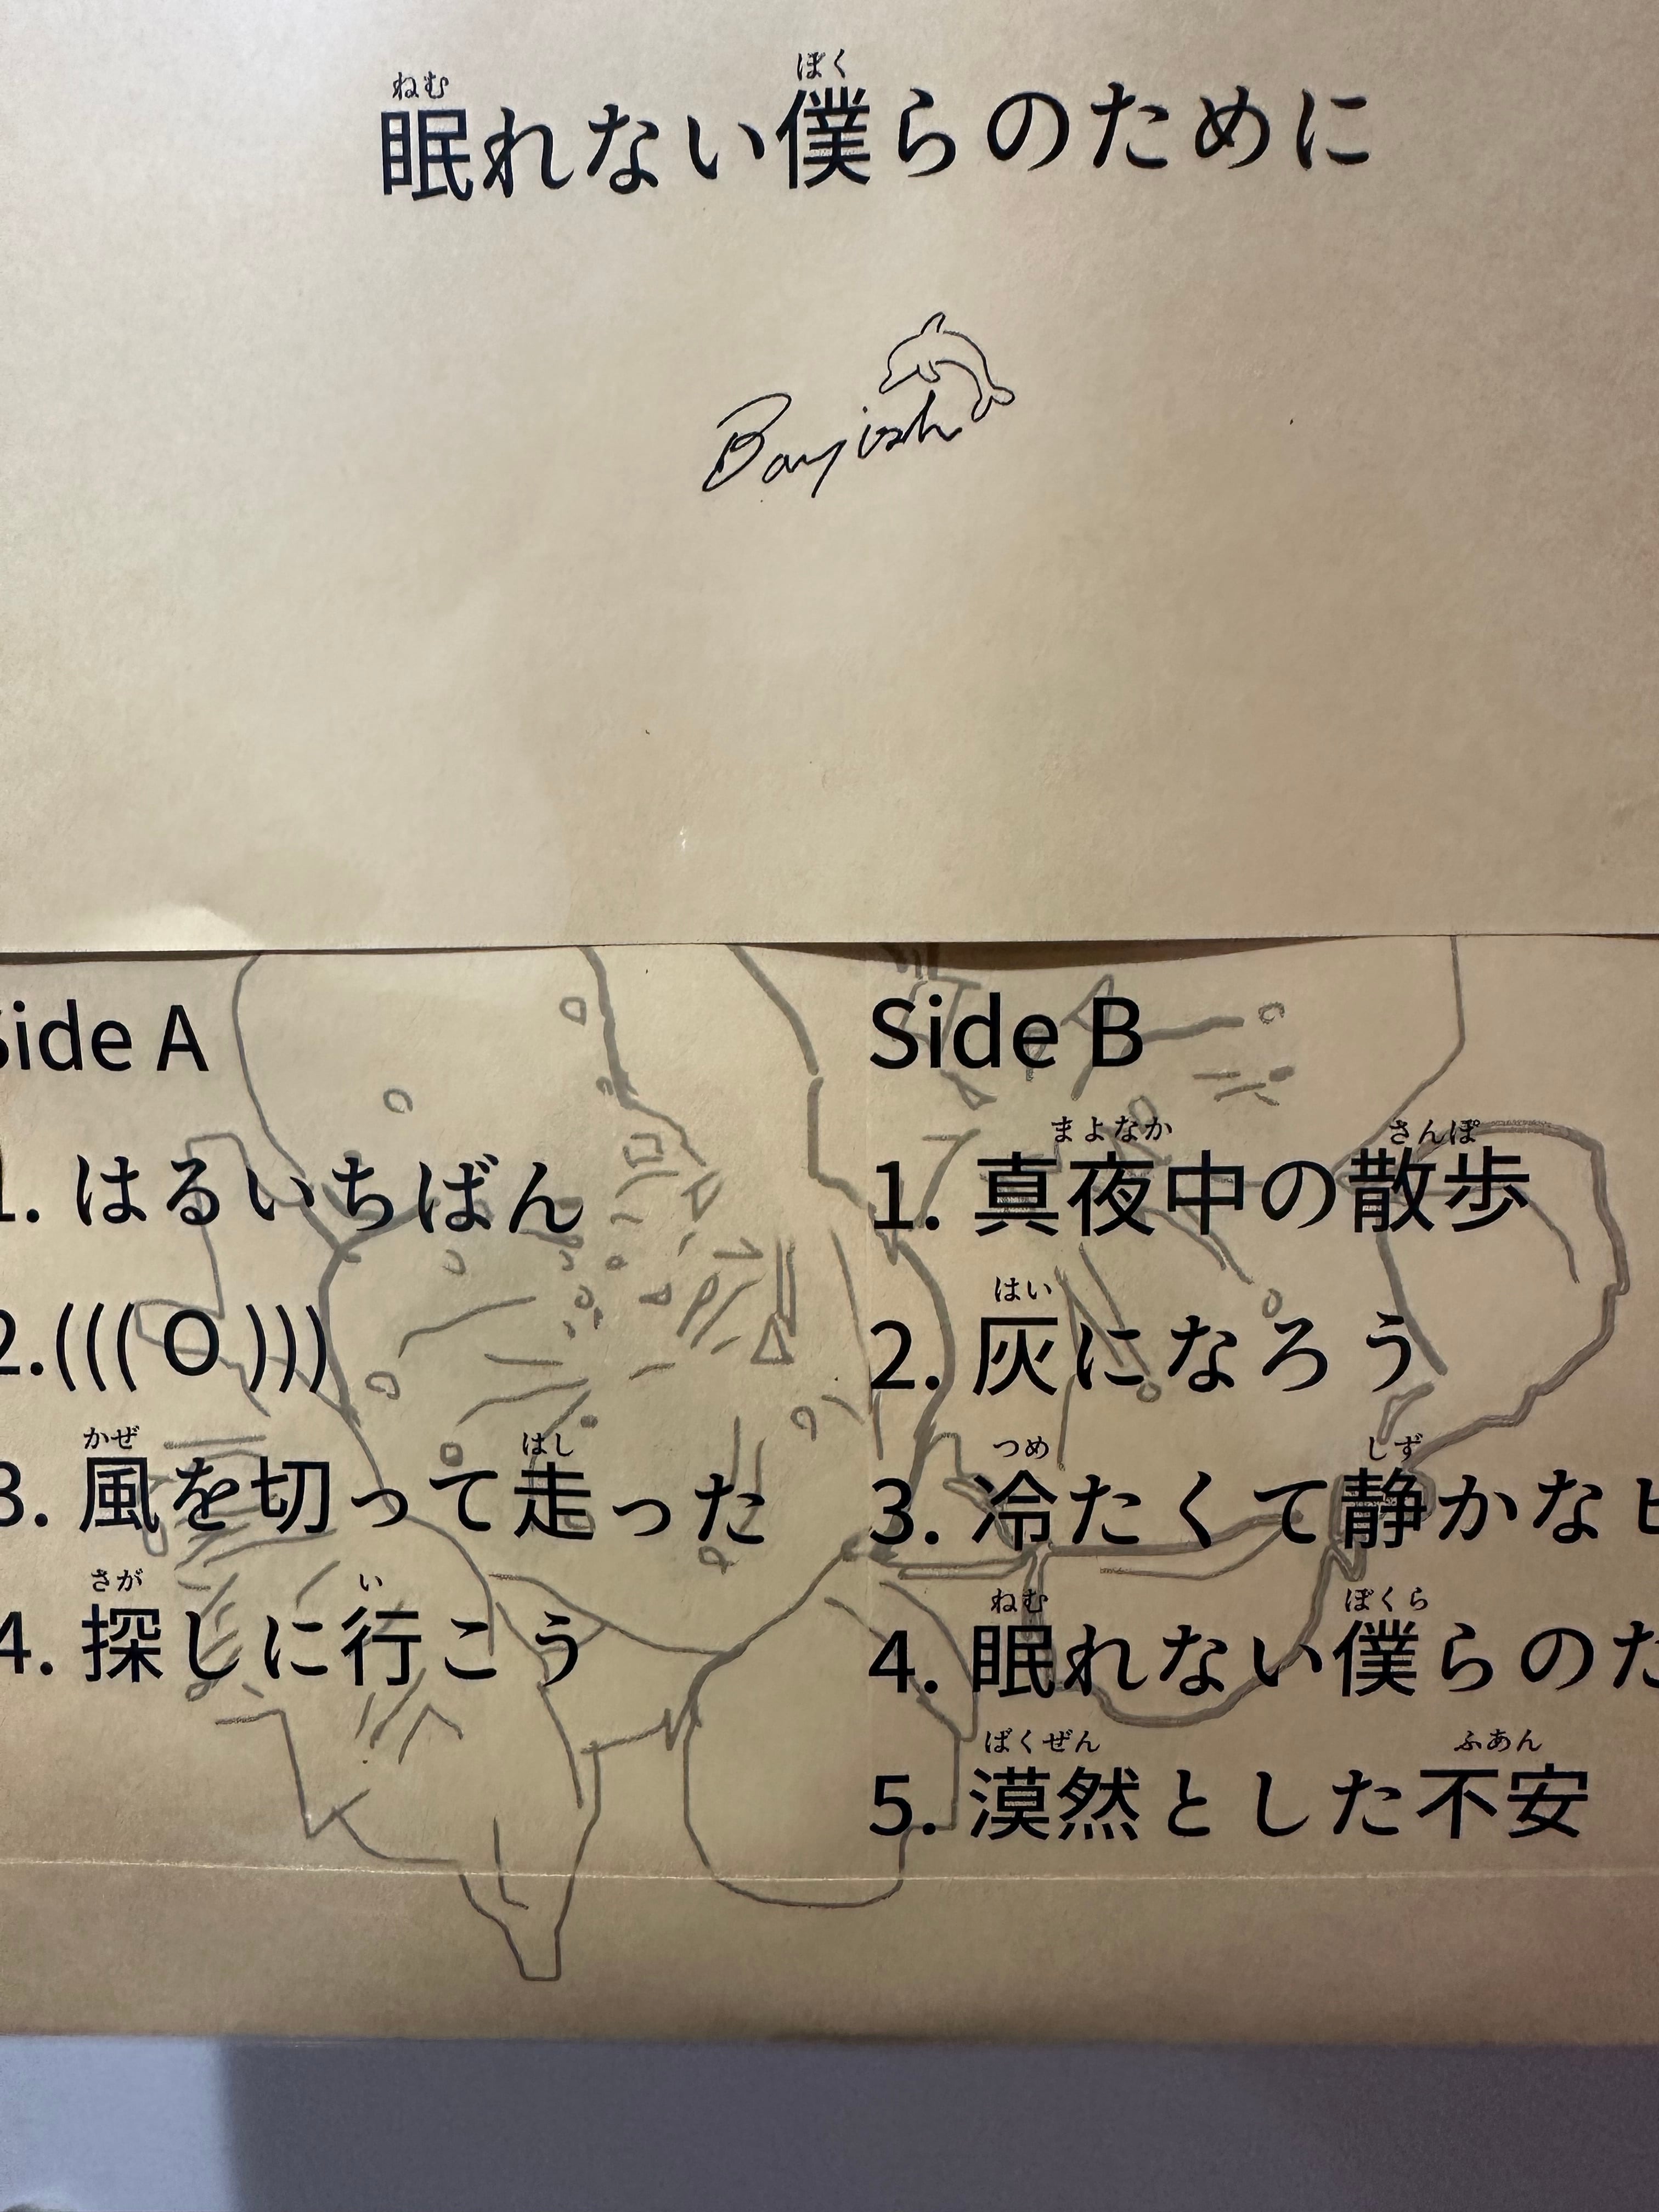 ねむ ぼく
眠れない僕らのために
Side A
1. はるいちばん
2.((( O )))
かぜ はし
3. 風を切って走った
さが い
4. 探しに行こう
Side B
まよなか さんぽ
1. 真夜中の散歩
はい
2. 灰になろう
つめ しず
3. 冷たくて静かな
ねむ ぼくら
4. 眠れない僕らのた
ばくぜん ふあん
5. 漠然とした不安